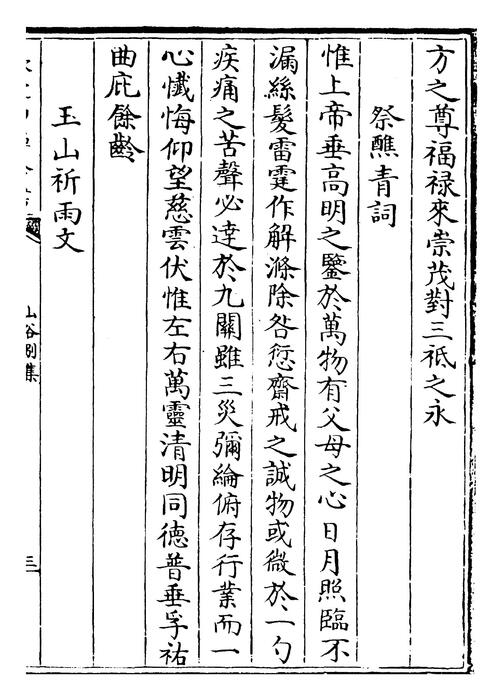 方之尊福禄來崇茂對三祗之永
祭醮青詞
惟上帝垂高明之鑒於萬物有父母之心日月照臨不
漏絲髮雷霆作解滌除咎愆齋戒之誠物或微於一勺
疾痛之苦聲必達於九關雖三災彌綸俯存行業而一
心懺悔仰望慈雲伏惟左右萬靈清明同德普垂孚祐
曲庇餘齡
玉山祈雨文
山谷别集
三